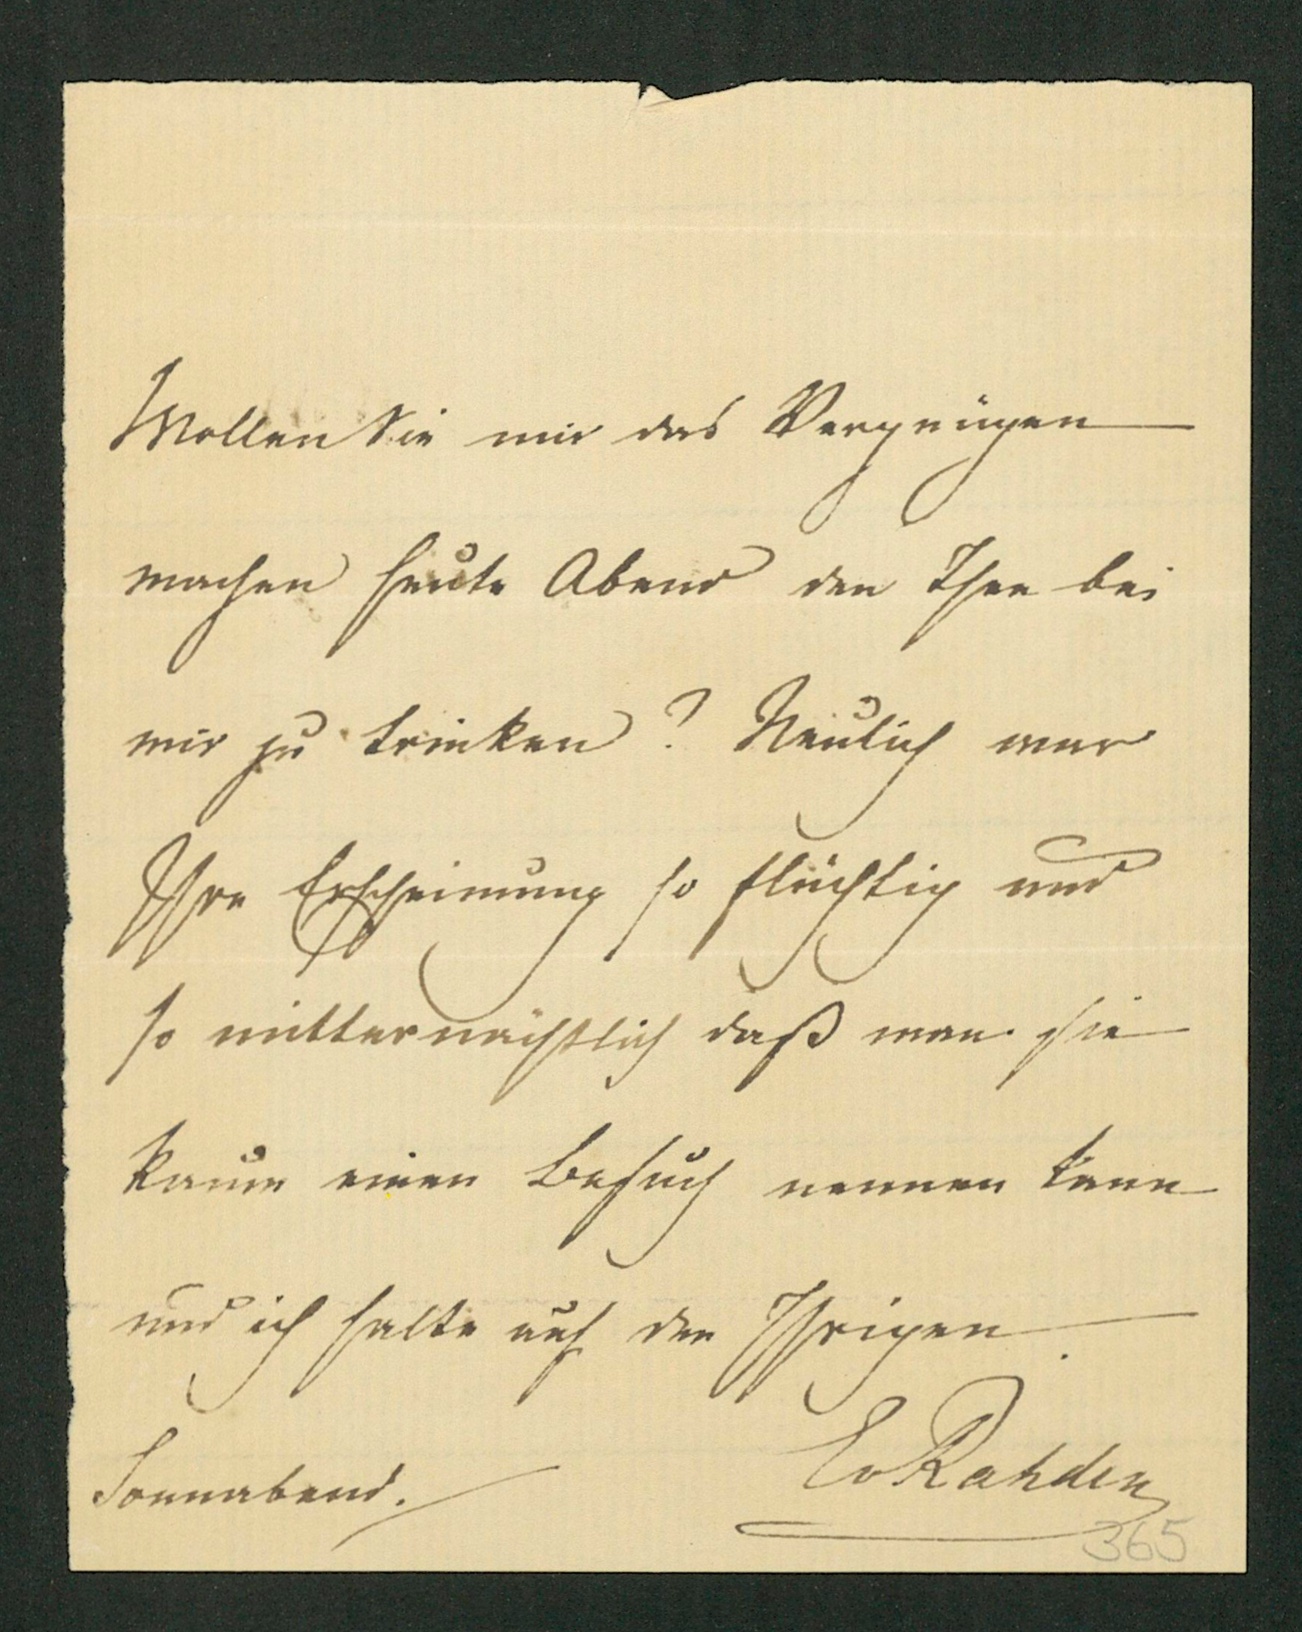 Wollen Sie mir das Vergnügen
machen heute Abend den Thee bei
mir zu trinken? Neulich war
Ihre Erscheinung so flüchtig und
so mitternächtlich daß man sie
kaum einen Besuch nennen kann
und ich halte auf den Ihrigen.
EvRahden
Sonnabend.
365